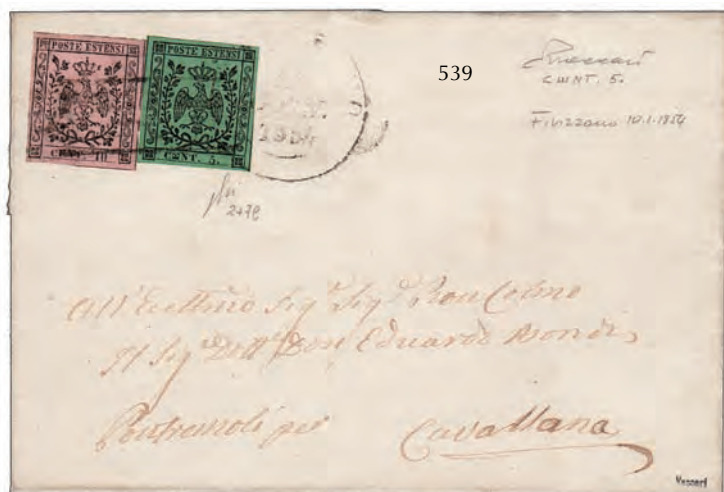 POSTE ESTENSI
CENT. 10.
POSTE ESTENSI
CWNT. 5.
1854
539
CWNT. 5.
Fivizzano 10.1.1854
2+7e
All' Sig.
Il Sig.r Dott.r Don Eduardo Bondi
Pontremoli per Cavallana
Vaccari